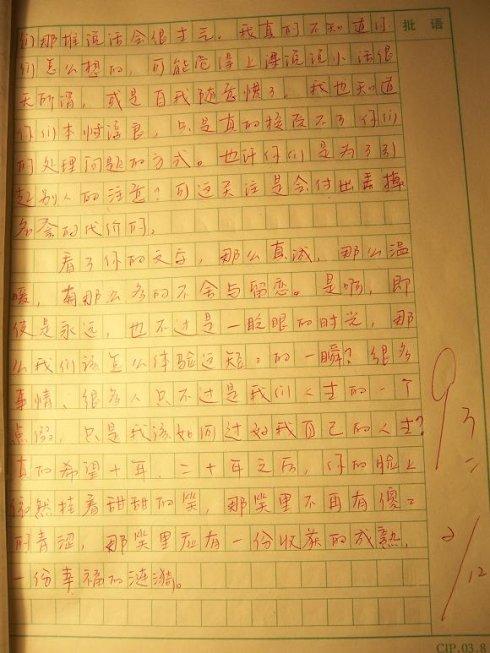 们那堆说话会很生气。我真的不知道你
们怎么想的，可能觉得上课说说小话很
无所谓，或是自我随意惯了。我也知道
你们本性淳良，只是真的接受不了你们
的处理问题的方式。也许你们是为了引
起别人的注意？可这关注是会付出丢掉
名誉的代价的。
看了你的文字，那么真诚，那么温
暖，有那么多的不舍与留恋。是啊，即
使是永远，也不过是一眨眼的时光，那
么我们该怎么体验这短短的一瞬？很多
事情、很多人只不过是我们人生的一个
点缀，只是我该如何过好我自己的人生？
真的希望十年、二十年之后，你的脸上
依然挂着甜甜的笑，那笑里不再有傻傻
的青涩，那笑里应有一份收获的成熟，
一份幸福的涟漪。
批语
93
2/12
CJP.03.8